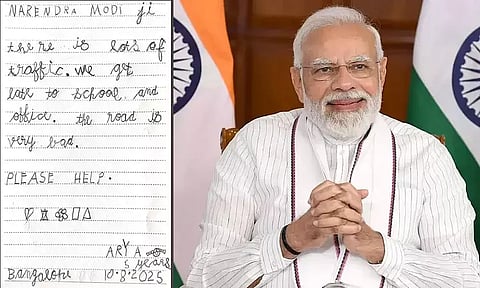 NARENDRA MODI ji
there is lots of
traffic. we get
late to school and
office. the road is
very bad.
PLEASE HELP.
ARYA
5 years
Bangalore 10.8.2025